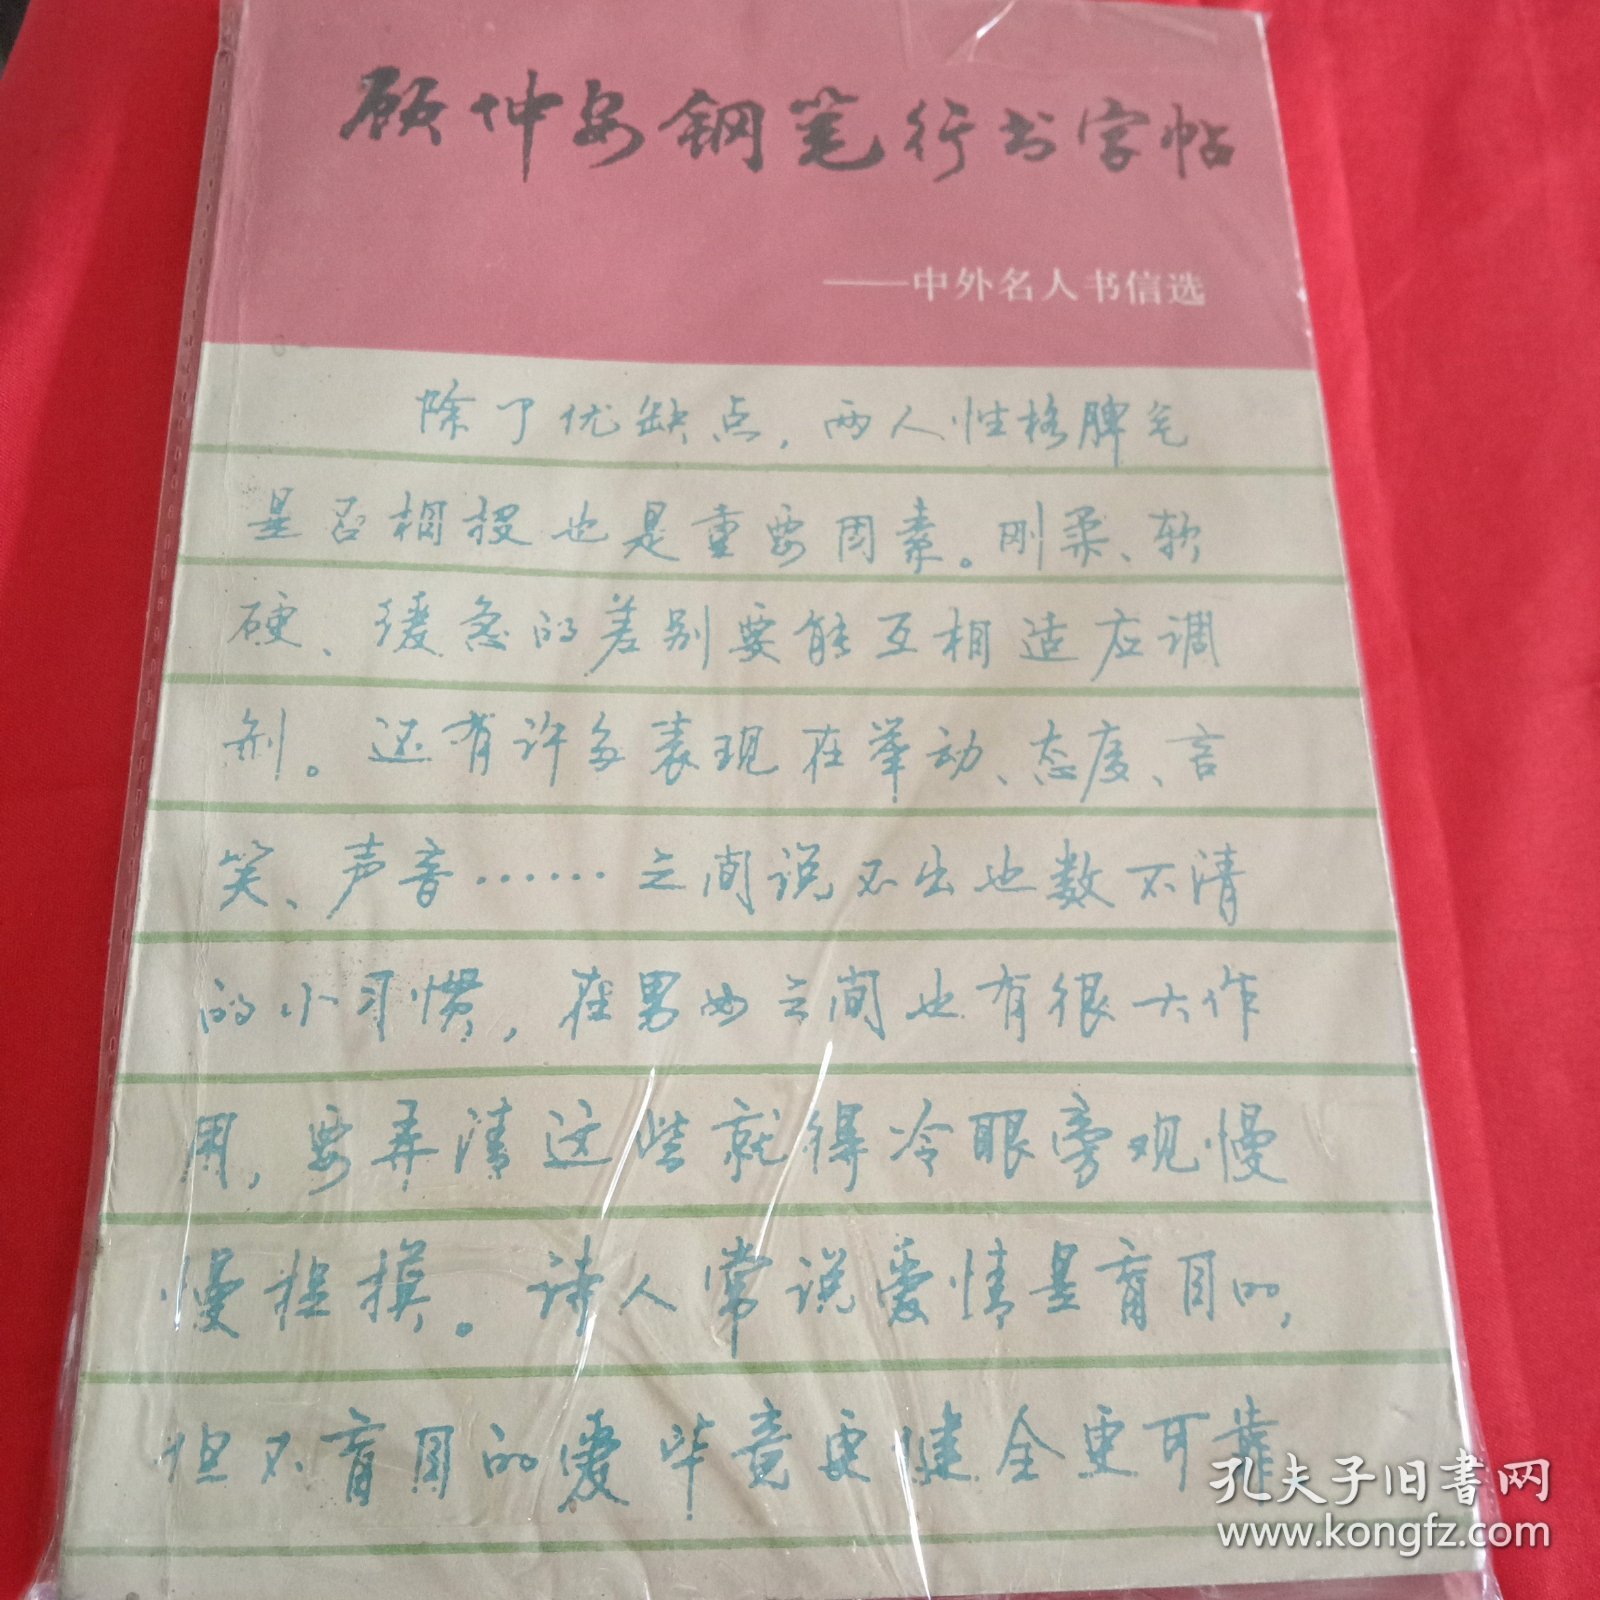 顾仲安钢笔行书字帖
——中外名人书信选
除了优缺点，两人性格脾气
是否相投也是重要因素。刚柔、软
硬、缓急的差别要能互相适应调
剂。还有许多表现在举动、态度、言
笑、声音……之间说不出也数不清
的小习惯，在男女之间也有很大作
用，要弄清这些就得冷眼旁观慢
慢捉摸。诗人常说爱情是盲目的，
但不盲目的爱毕竟更健全更可靠
孔夫子旧书网
www.kongfz.com